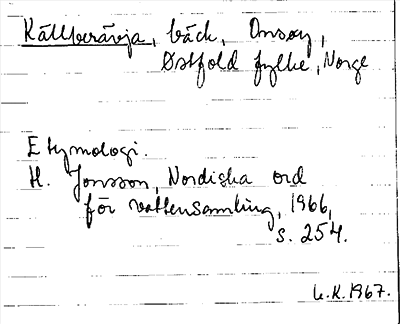 Källberävja, bäck, Onsøy,
Østfold fylke, Norge
Etymologi.
H. Jonsson, Nordiska ord
för vattensamling, 1966,
s. 254.
L.K. 1967.